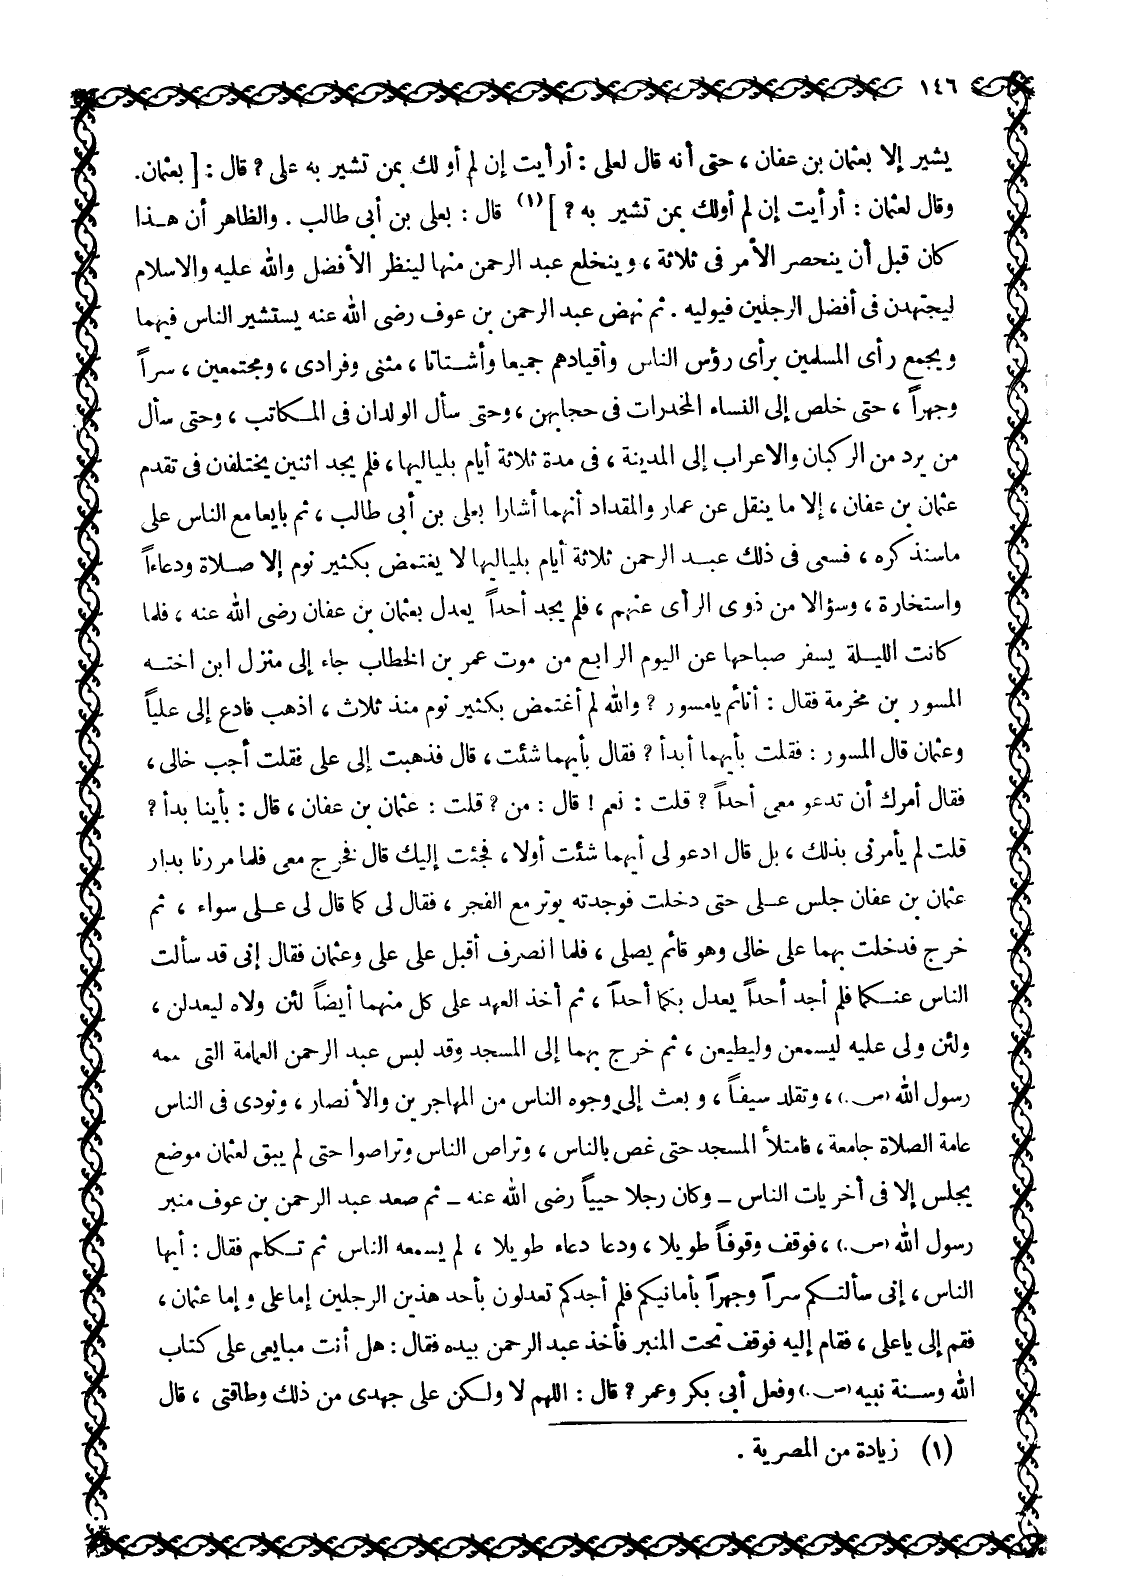 ١٤٦
يشير إلا بعثمان بن عفان ، حتى أنه قال لعلى : أرأيت إن لم أو لك بمن تشير به على ? قال : [ بعثمان .
وقال لعثمان : أرأيت إن لم أولك بمن تشير به ? ] (١) قال : بعلى بن أبى طالب . والظاهر أن هـذا
كان قبل أن ينحصر الأمر فى ثلاثة ، وينخلع عبد الرحمن منها لينظر الأفضل والله عليه والاسلام
ليجتهدن فى أفضل الرجلين فيوليه . ثم نهض عبد الرحمن بن عوف رضى الله عنه يستشير الناس فيهما
ويجمع رأى المسلمين برأى رؤس الناس وأقيادهم جميعا وأشـتاتا ، مثنى وفرادى ، ومجتمعين ، سراً
وجهراً ، حتى خلص إلى النساء المخدرات فى حجابهن ، وحتى سأل الولدان فى المـكاتب ، وحتى سأل
من يرد من الركبان والاعراب إلى المدينة ، فى مدة ثلاثة أيام بلياليها ، فلم يجد اثنين يختلفان فى تقدم
عثمان بن عفان ، إلا ما ينقل عن عمار والمقداد أنهما أشارا بعلى بن أبى طالب ، ثم بايعا مع الناس على
ماسنذكره ، فسعى فى ذلك عبـد الرحمن ثلاثة أيام بلياليها لا يغتمض بكثير نوم إلا صـلاة ودعاءاً
واستخارة ، وسؤالا من ذوى الرأى عنهم ، فلم يجد أحداً يعدل بعثمان بن عفان رضى الله عنه ، فلما
كانت الليـلة يسفر صباحها عن اليوم الرابع من موت عمر بن الخطاب جاء إلى منزل ابن اختـه
المسور بن مخرمة فقال : أنائم يامسور ? والله لم أغتمض بكثير نوم منذ ثلاث ، اذهب فادع إلى علياً
وعثمان قال المسور : فقلت بأيهما أبدأ ? فقال بأيهما شئت ، قال فذهبت إلى على فقلت أجب خالى ،
فقال أمرك أن تدعو معى أحداً ? قلت : نعم ! قال : من ? قلت : عثمان بن عفان ، قال : بأينا بدأ ?
قلت لم يأمرنى بذلك ، بل قال ادعو لى أيهما شئت أولا ، فجئت إليك قال فخرج معى فلما مررنا بدار
عثمان بن عفان جلس عـلى حتى دخلت فوجدته يوتر مع الفجر ، فقال لى كما قال لى عـلى سواء ، ثم
خرج فدخلت بهما على خالى وهو قائم يصلى ، فلما انصرف أقبل على على وعثمان فقال إنى قد سألت
الناس عنـكما فلم أجد أحداً يعدل بكما أحداً ، ثم أخذ العهد على كل منهما أيضاً لئن ولاه ليعدلن ،
ولئن ولى عليه ليسمعن وليطيعن ، ثم خرج بهما إلى المسجد وقد لبس عبد الرحمن العمامة التى عممه
رسول الله (ص.) ، وتقلد سيفـاً ، وبعث إلى وجوه الناس من المهاجرين والأنصار ، ونودى فى الناس
عامة الصلاة جامعة ، فامتلأ المسجد حتى غص بالناس ، وتراص الناس وتراصوا حتى لم يبق لعثمان موضع
يجلس إلا فى أخريات الناس ــ وكان رجلا حيياً رضى الله عنه ــ ثم صعد عبد الرحمن بن عوف منبر
رسول الله (ص.) ، فوقف وقوفاً طويلا ، ودعا دعاء طويلا ، لم يسمعه الناس ثم تـكلم فقال : أيها
الناس ، إنى سألتـكم سراً وجهراً بأمانيكم فلم أجدكم تعدلون بأحد هذين الرجلين إما على وإما عثمان ،
فقم إلى ياعلى ، فقام إليه فوقف تحت المنبر فأخذ عبد الرحمن بيده فقال : هل أنت مبايعى على كتاب
الله وسنة نبيه (ص.) وفعل أبى بكر وعمر ? قال : اللهم لا ولـكن على جهدى من ذلك وطاقتى ، قال
(١) زيادة من المصرية .